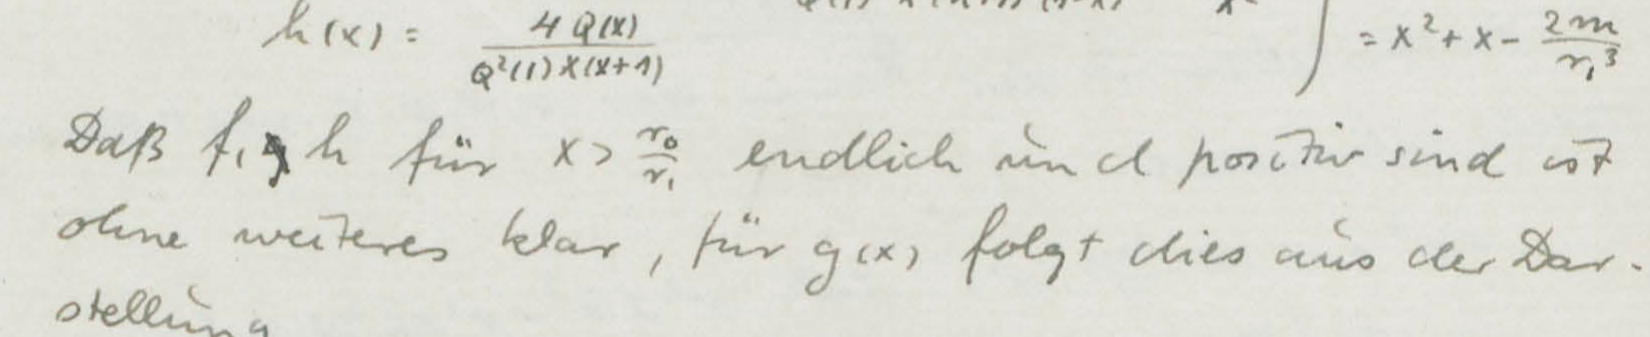 h(x) = 4 Q(x) / Q²(1) x(x+1) = x² + x - 2m / r₁³
Daß f, h für x > r₀/r₁ endlich und positiv sind ist
ohne weiteres klar, für g(x) folgt dies aus der Dar-
stellung